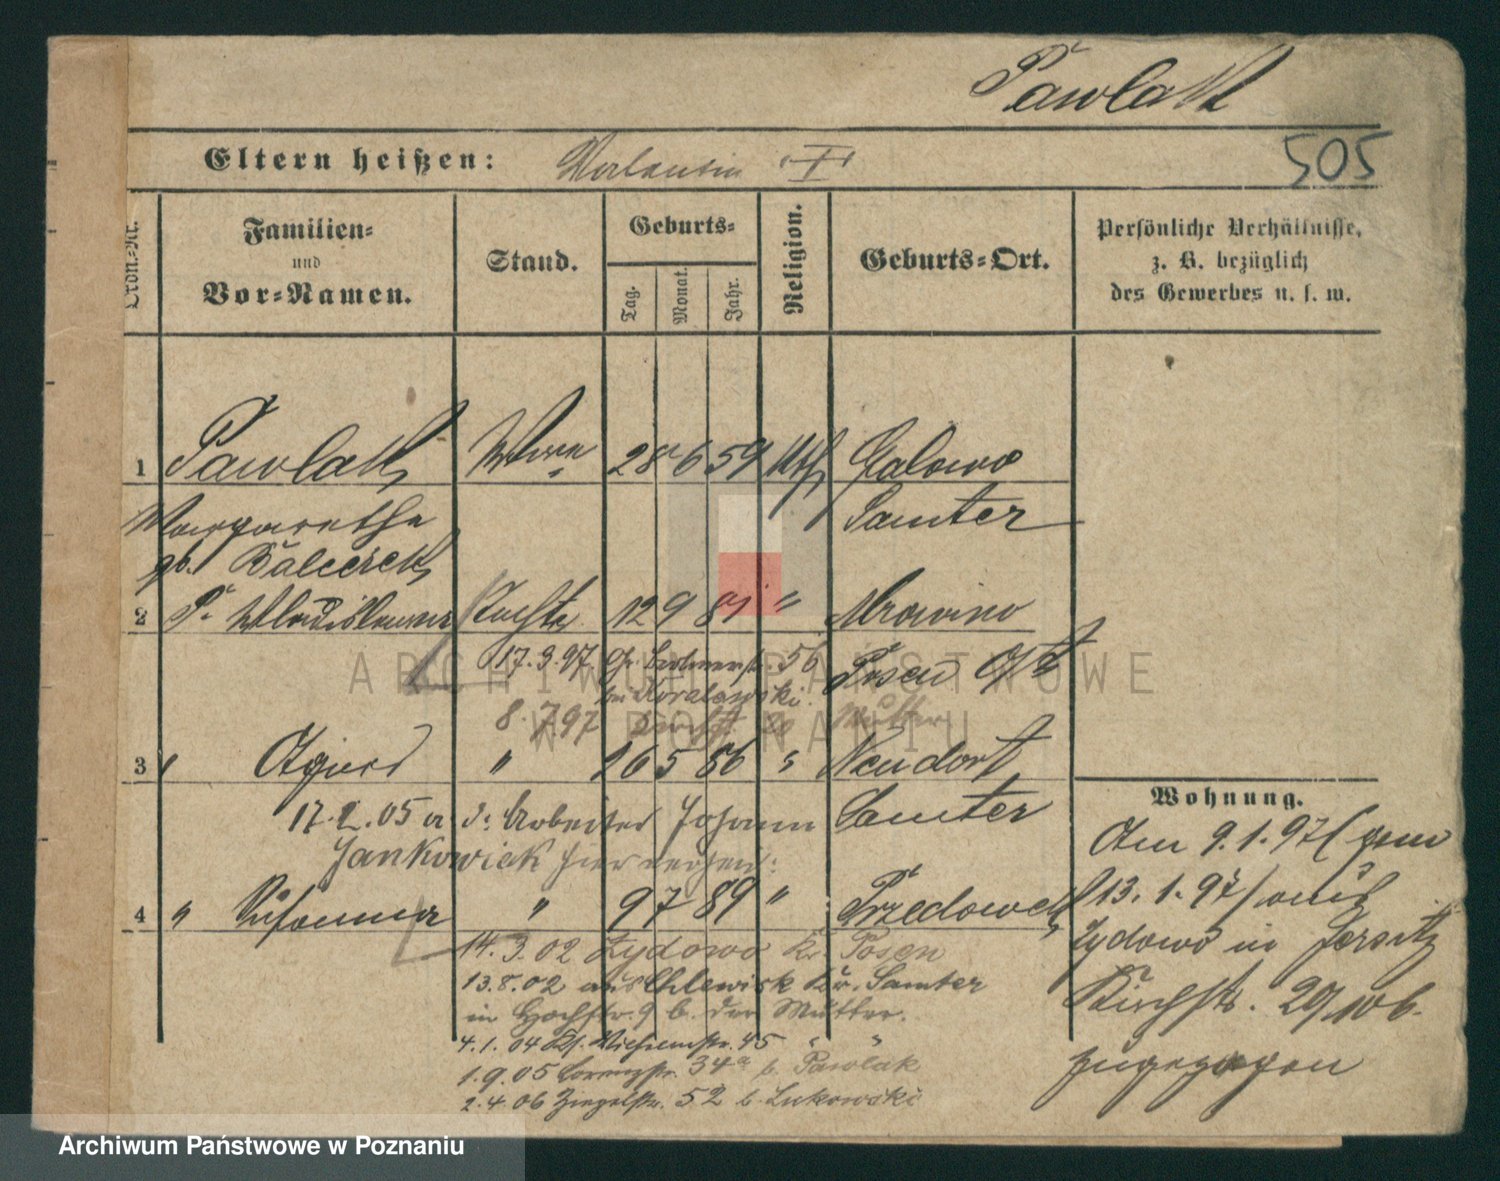 Pawlak
Eltern heißen: Valentin
505
Ordn.-Nr.
Familien-
und
Vor-Namen.
Stand.
Geburts-
Tag.
Monat.
Jahr.
Religion.
Geburts-Ort.
Persönliche Verhältnisse,
z. B. bezüglich
des Gewerbes u. s. w.
1 Pawlak Wwe 28 6 59 kth Galowo
Margarethe Samter
gb. Balcerek
2 P. Wladislawa Tocht 12 9 81 " Mrowino
17.3.97 56 Posen
bei Koralewski
8.7.97 Mutter
3 " Agnes " 16 5 86 " Neudorf
17.2.05 a d. Arbeiter Johann Samter
Jankowiak hier versch.
4 " Susanna " 9 7 89 " Przedowek
14.3.02 Zydowo Kr. Posen
13.8.02 aus Chlewisk Kr. Samter
in Hochstr. 9 b. der Mutter.
4.1.04 45 " "
1.9.05 Lorenzstr. 34a b. Pawlak
2.4.06 Ziegelstr. 52 b. Lukowski
Wohnung.
Am 9.1.97 (gem
13.1.97) aus
Zydowo in Jersitz
Kirchstr. 20/10 b.
zugezogen
ARCHIWUM PAŃSTWOWE
W POZNANIU
Archiwum Państwowe w Poznaniu